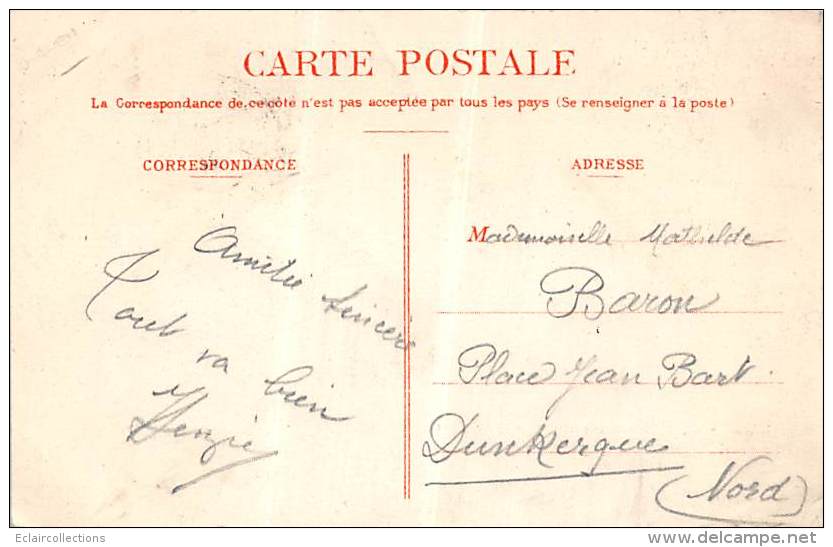 CARTE POSTALE
La Correspondance de ce côté n'est pas acceptée par tous les pays (Se renseigner à la poste)
CORRESPONDANCE
Amitié sincère
Tout va bien
ADRESSE
Mademoiselle Mathilde
Baron
Place Jean Bart
Dunkerque
(Nord)
Eclaircollections
delcampe.net